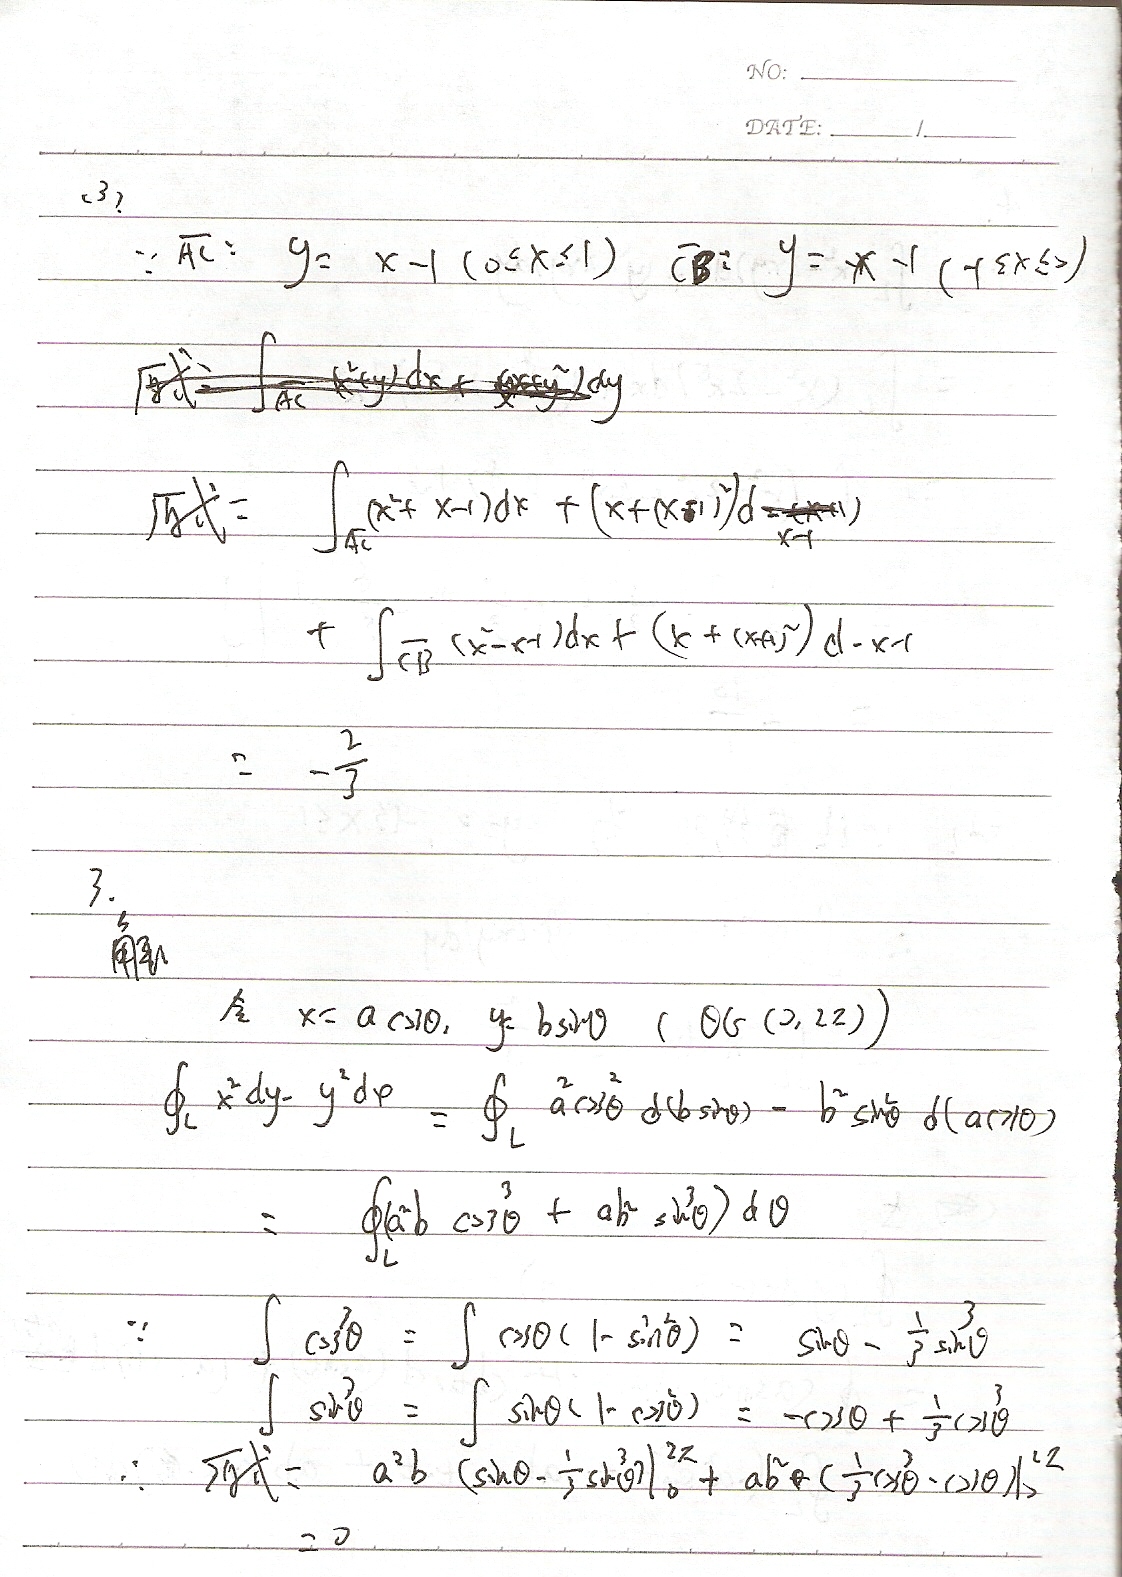 NO:
DATE: /
(3)
∵ AC: y = x-1 (0≤x≤1) CB: y = -x-1 (-1≤x≤0)
原式= ∫AC (x²+y)dx + (x+y²)dy
原式= ∫AC (x²+x-1)dx + (x+(x-1)²)d x-1
+ ∫CB (x²-x-1)dx + (x+(x+1)²)d-x-1
= -2/3
3.
解
令 x= a cosθ, y= b sinθ ( θ∈(0, 2π))
∮L x²dy - y²dx = ∮L a²cos²θ d(b sinθ) - b²sin²θ d(a cosθ)
= ∮L(a²b cos³θ + ab² sin³θ) dθ
∵ ∫ cos³θ = ∫ cosθ(1-sin²θ) = sinθ - 1/3 sin³θ
∫ sin³θ = ∫ sinθ(1-cos²θ) = -cosθ + 1/3 cos³θ
∴ 原式= a²b (sinθ - 1/3 sin³θ)|₀²π + ab² (1/3 cos³θ - cosθ)|₀²π
= 0